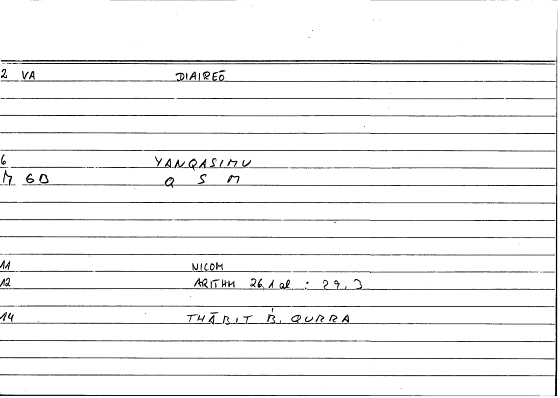 2 VA DIAIREŌ
6 YANQASIMU
M GD Q S M
11 NICOM
12 ARITHM 26,1 al : 29,3
14 THĀBIT B. QURRA